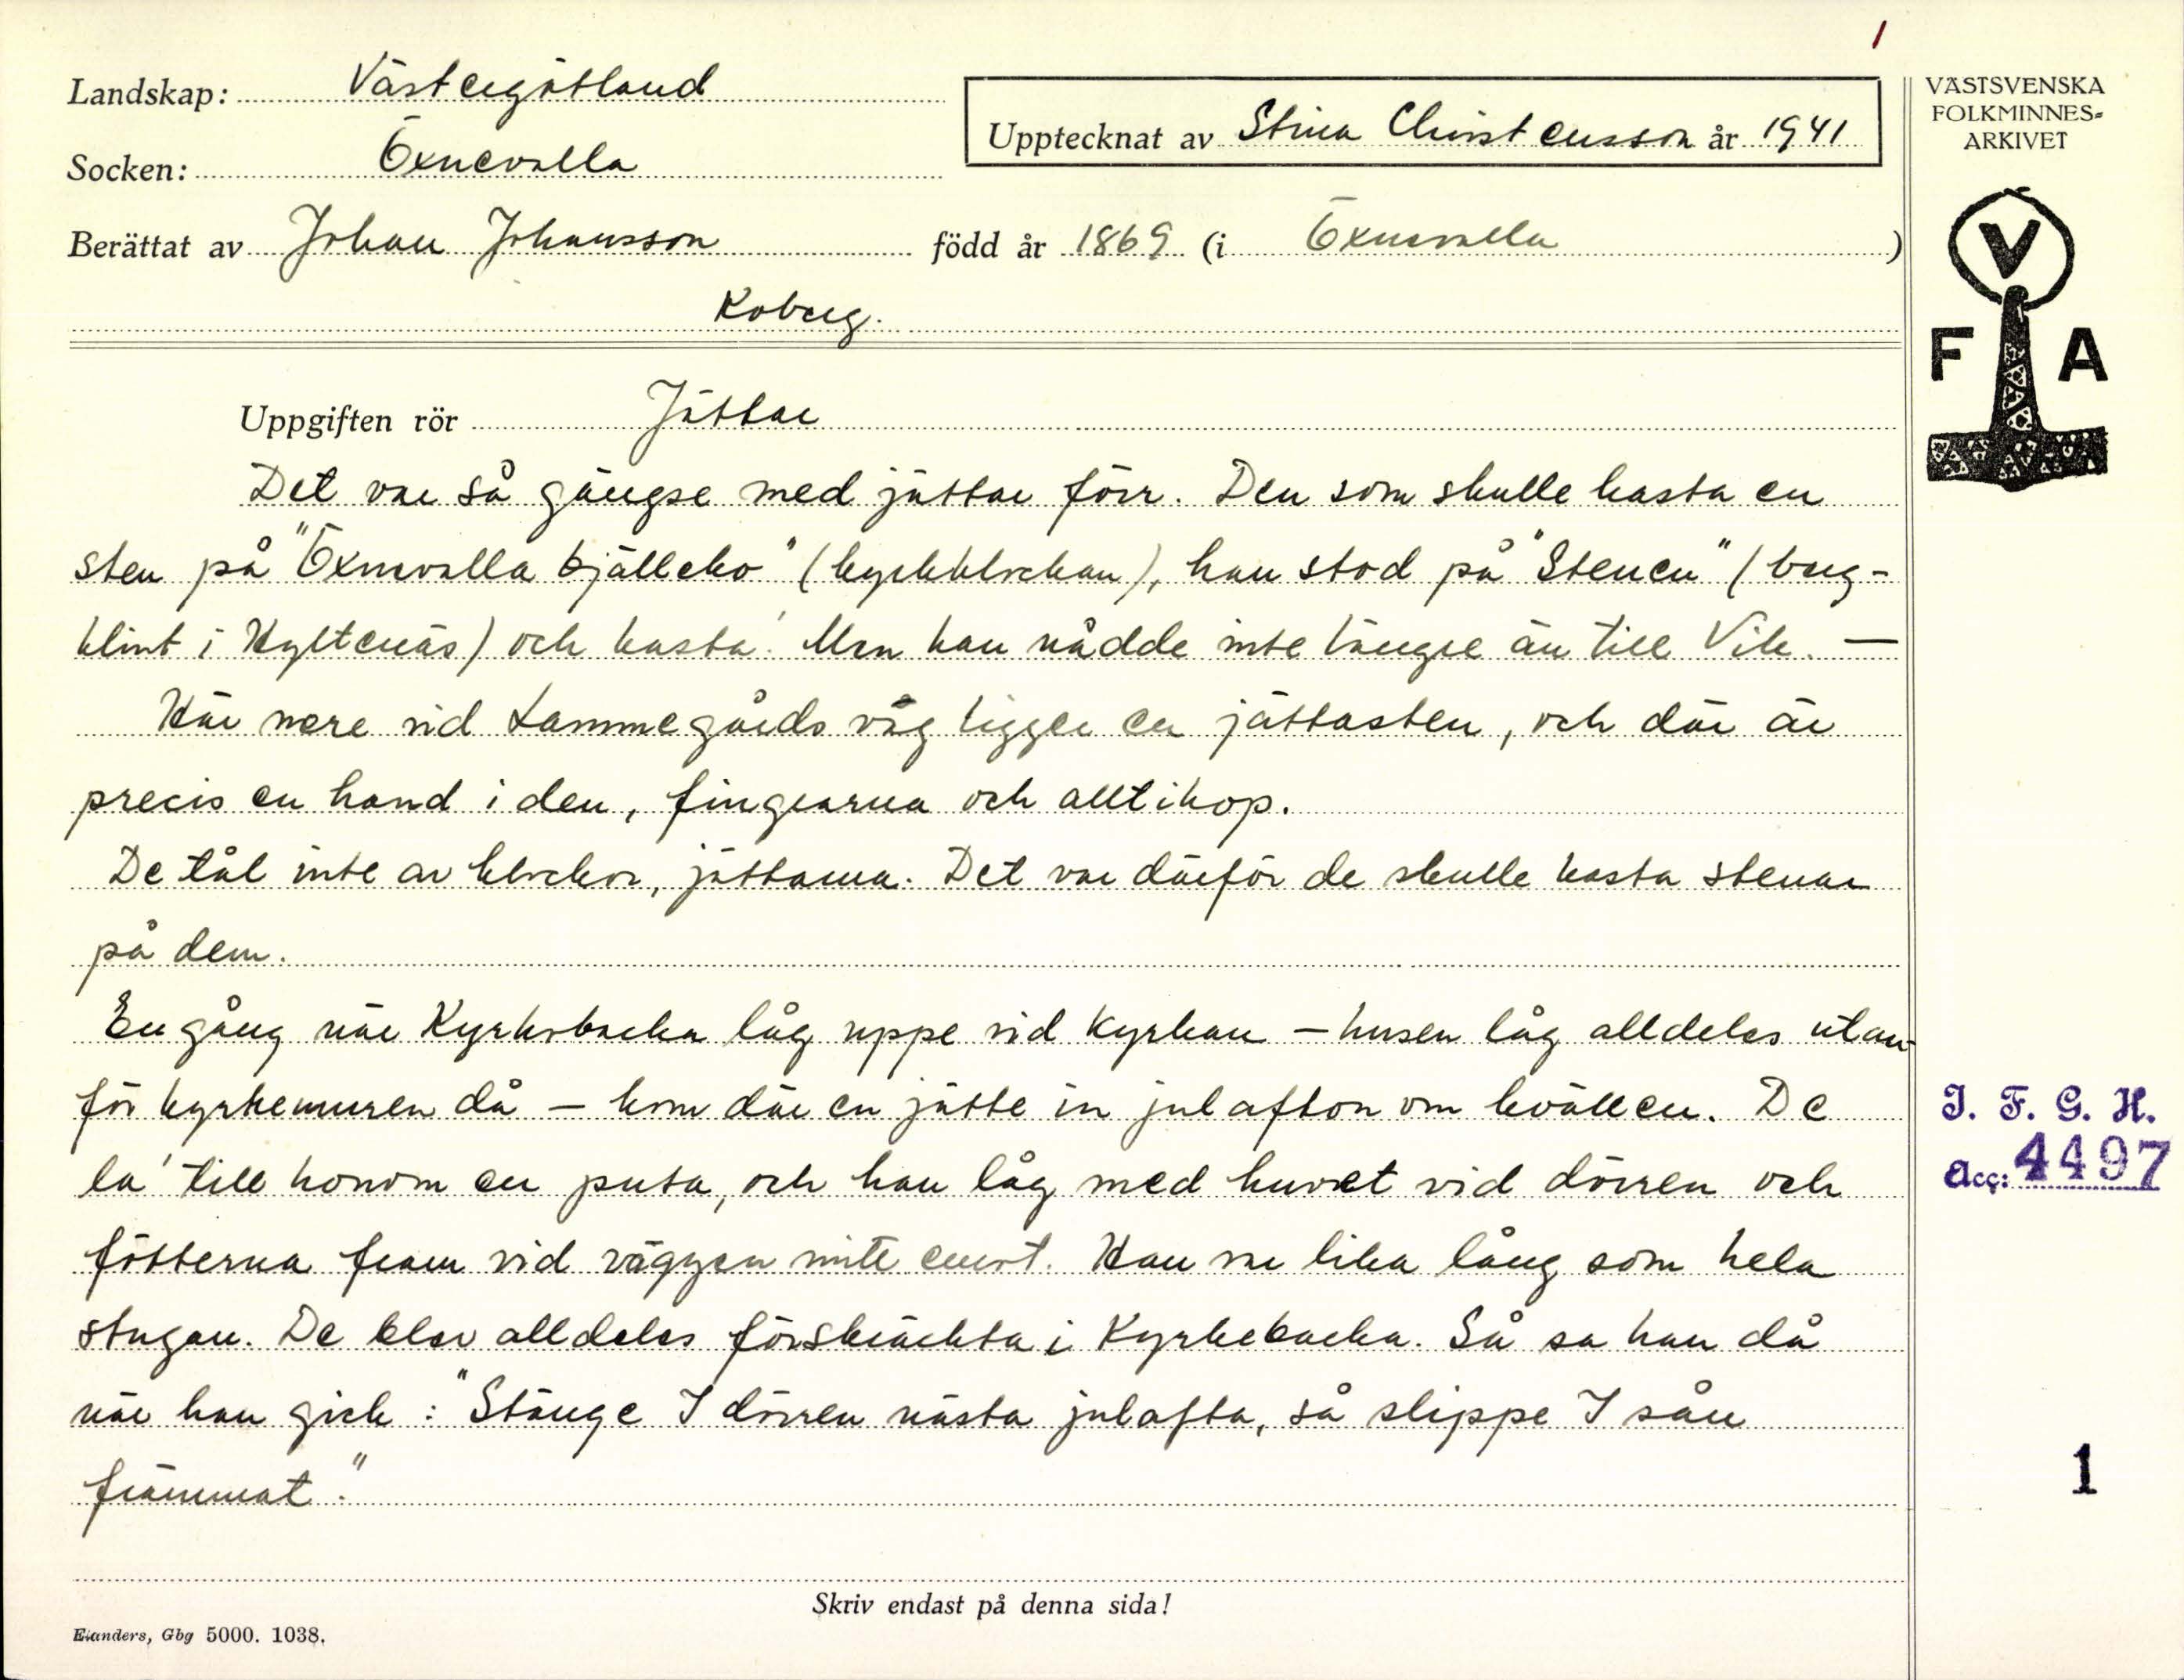 1
Landskap: Västergötland
Socken: Öxnevalla
Upptecknat av Stina Christensson år 1941
Berättat av Johan Johansson född år 1869 (i Öxnevalla)
Koberg.
VÄSTSVENSKA
FOLKMINNES-
ARKIVET
V
F A
Uppgiften rör Jättar
Det var så gängse med jättar förr. Den som skulle kasta en
sten på "Öxnevalla bjällcko" (kyrkklockan), han stod på "Stenen" (berg-
klint i Hyltenäs) och kasta'. Men han nådde inte längre än till Vik. —
Här nere vid Lammegårds väg ligger en jättasten, och där är
precis en hand i den, fingrarna och alltihop.
De tål inte av klockor, jättarna. Det var därför de skulle kasta stenar
på dem.
En gång när Kyrkobacka låg uppe vid kyrkan — husen låg alldeles utan-
för kyrkemuren då — kom där en jätte in julafton om kvällen. De
la' till honom en puta, och han låg med huvet vid dörren och
fötterna fram vid väggen mitt emot. Han var lika lång som hela
stugan. De blev alldeles förskräckta i Kyrkebacka. Så sa han då
när han gick: "Stänge I dörren nästa julafta, så slippe I sån
främmat."
I. F. G. H.
Acc: 4497
1
Skriv endast på denna sida!
Elanders, Gbg 5000. 1038.